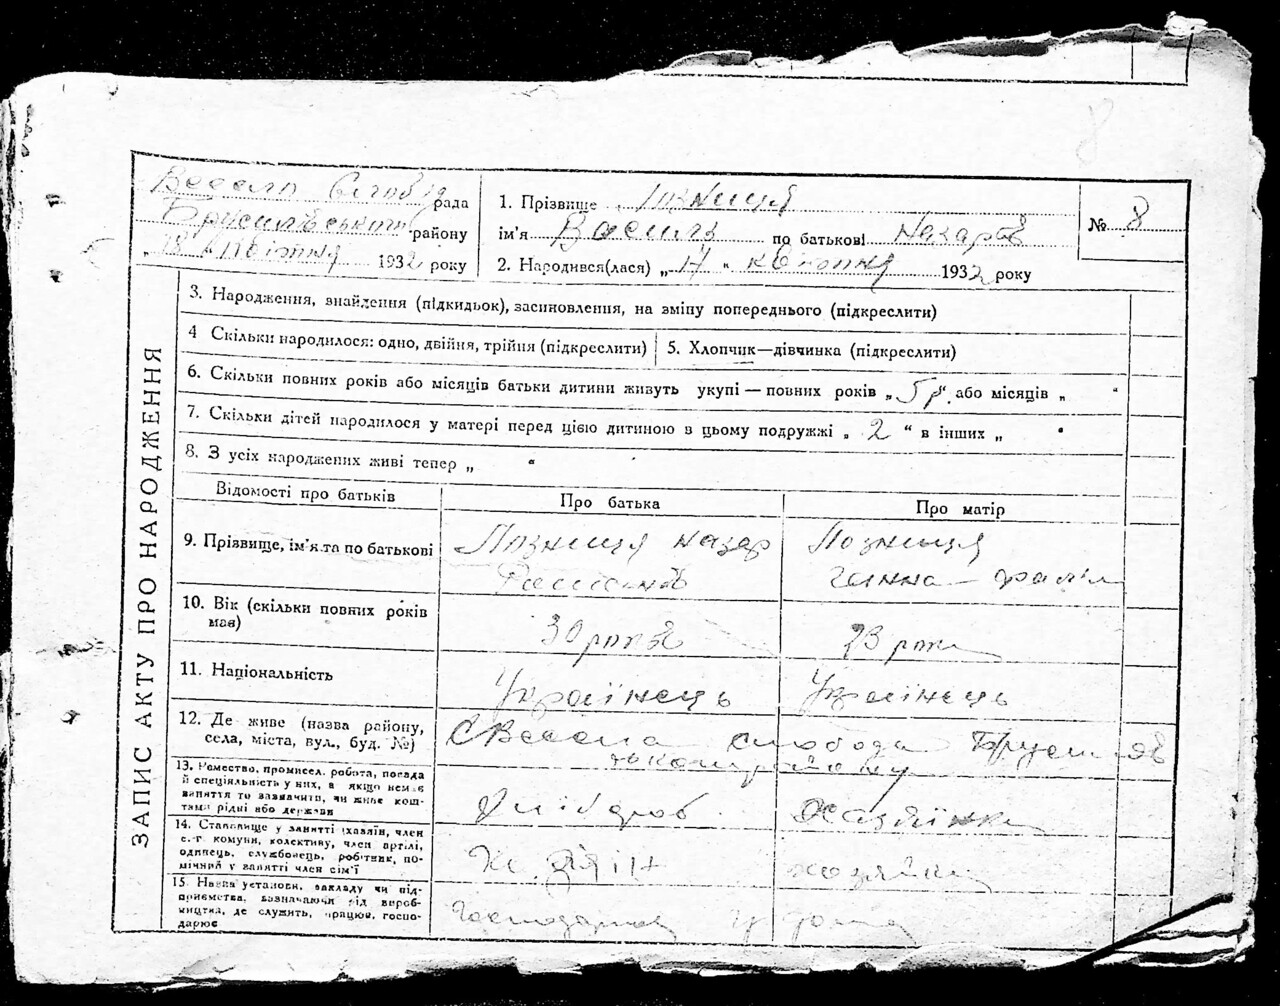 8
Весело Слобід рада
Брусилівського району
„18 „ квітня 1932 року
1. Прізвище Позниця
ім'я Василь по батькові Назарів
2. Народився(лася) „17 „ квітня 1932 року
№ 8
ЗАПИС АКТУ ПРО НАРОДЖЕННЯ
3. Народження, знайдення (підкидьок), засиновлення, на зміну попереднього (підкреслити)
4 Скільки народилося: одно, двійня, трійня (підкреслити)
5. Хлопчик—дівчинка (підкреслити)
6. Скільки повних років або місяців батьки дитини живуть укупі — повних років „ 5р “ або місяців „ “
7. Скільки дітей народилося у матері перед цією дитиною в цьому подружжі „ 2 “ в інших „ “
8. З усіх народжених живі тепер „ “
Відомості про батьків
Про батька
Про матір
9. Прізвище, ім'я та по батькові
Позниця Назар
Позниця
Ганна
10. Вік (скільки повних років
має)
30 років
23 роки
11. Національність
Українець
Українець
12. Де живе (назва району,
села, міста, вул., буд. №)
С Весела слобода Брусилів
району
13. Ремество, промисел, робота, посада
й спеціяльність у них, а якщо немає
заняття то зазначити, чи живе кош-
тами рідні або держави
Хлібороб
Хазяйка
14. Становище у занятті (хазяїн, член
с.-г. комуни, колективу, член артілі,
одинець, службовець, робітник, по-
мічний у занятті член сім'ї
хазяйка
15. Назва установи, закладу чи під-
приємства, зазначаючи рід вироб-
ництва, де служить, працює, госпо-
дарює